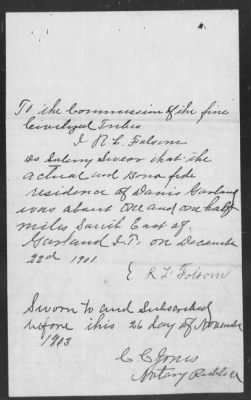 To the Commission of the five
Civilized Tribes
I R L Folsom
do Solemly Swear that the
actual and Bona fide
residence of Davis Garland
was about One and one half
miles South East of
Garland I.T. on December
22d 1901
R L Folsom
Sworn to and Subscribed
before this 26 day of November
1903
C C Jones
Notary Public